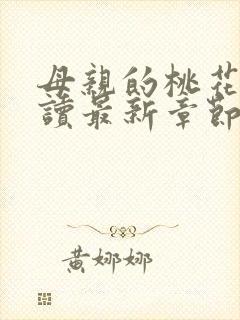 母親的桃花
讀最新章節
黃娜娜